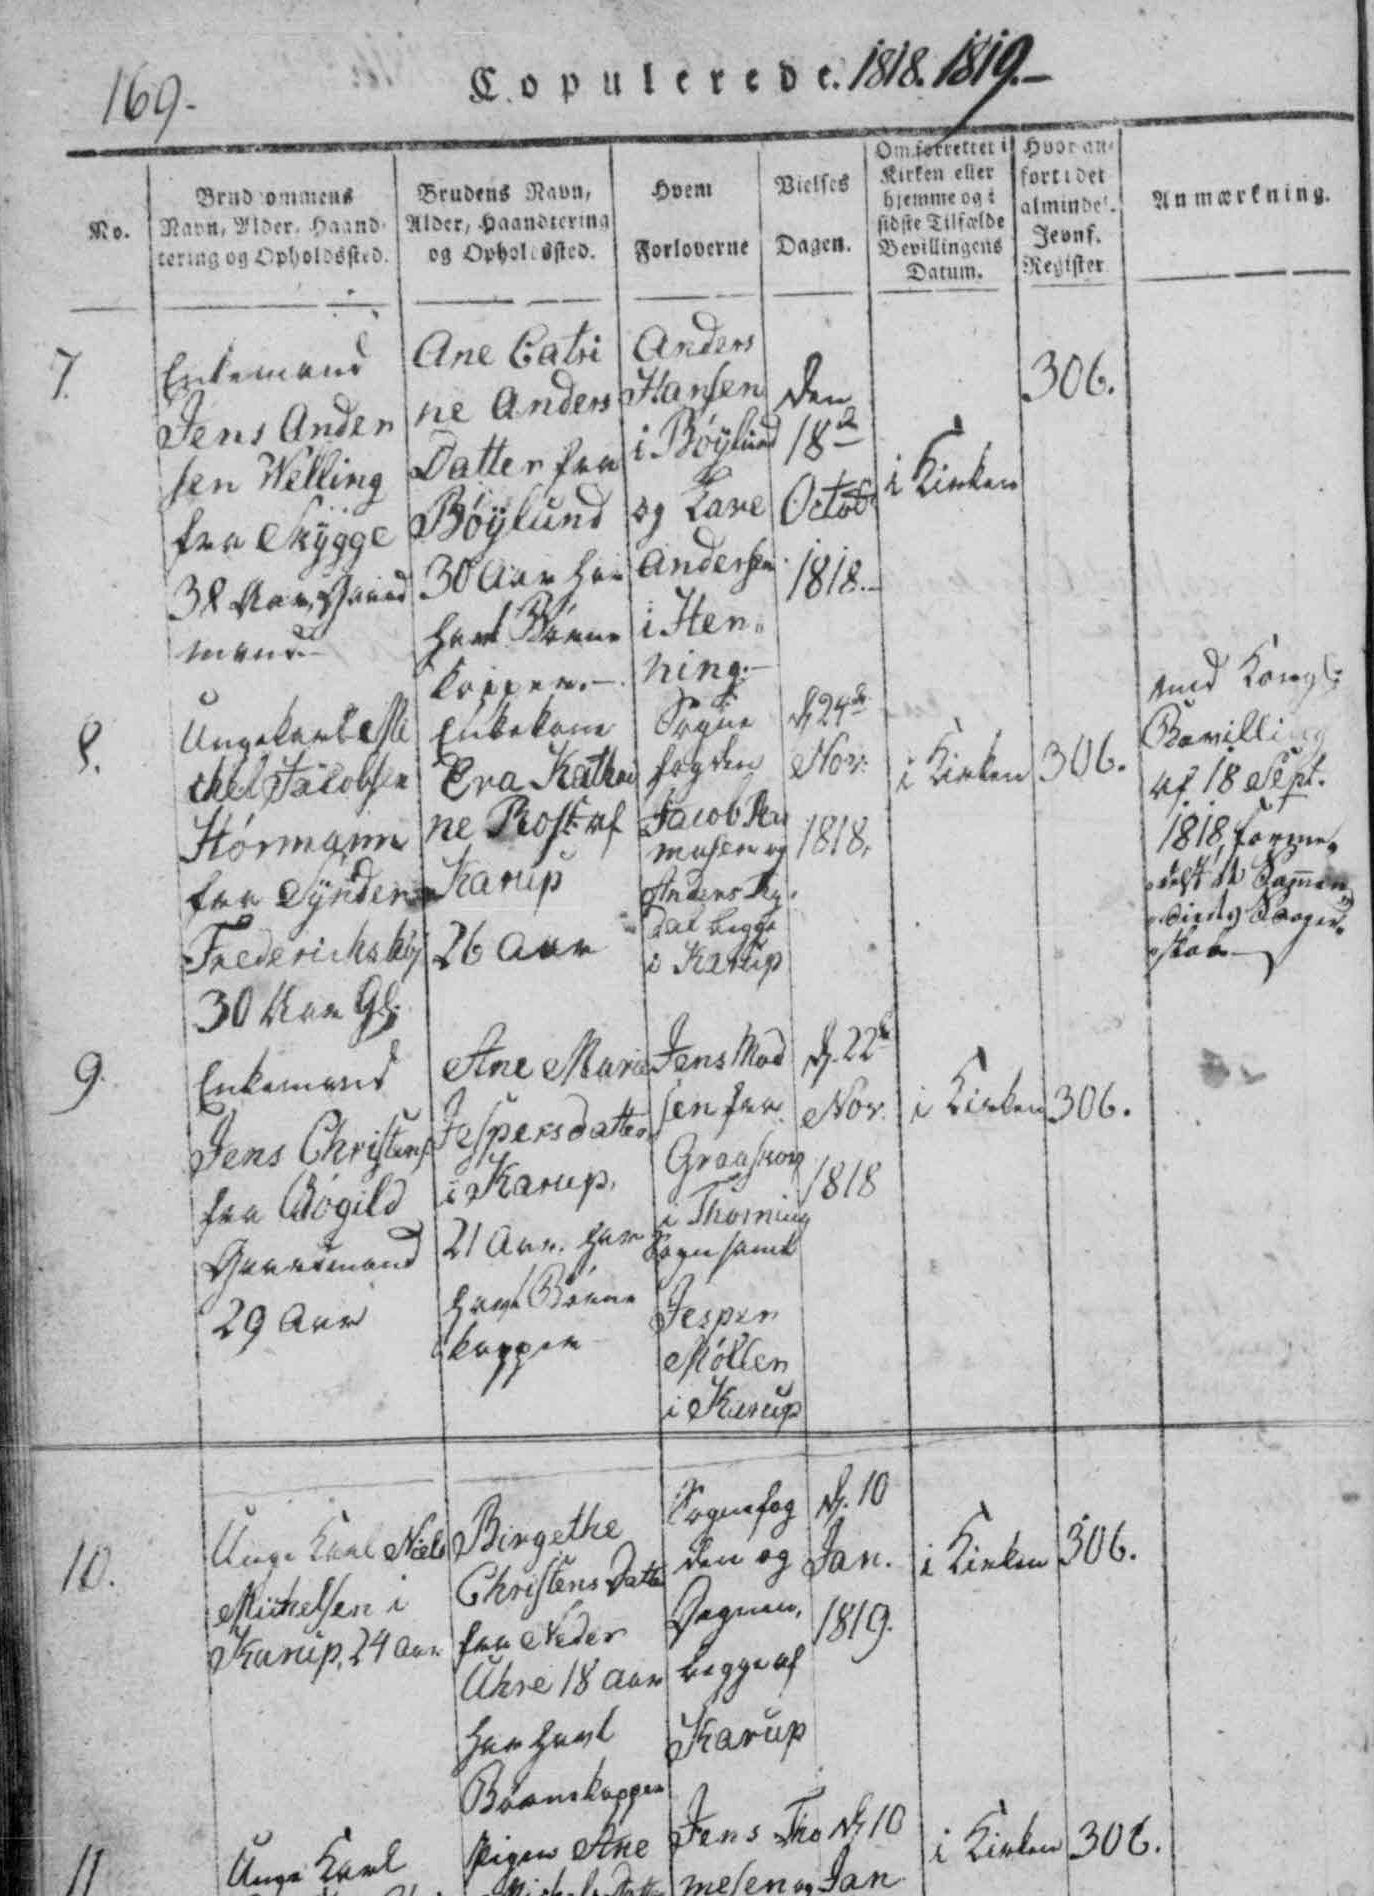 169.
Copulerede. 1818. 1819.
No.
Brudgommens
Navn, Alder, Haand-
tering og Opholdssted.
Brudens Navn,
Alder, Haandtering
og Opholdssted.
Hvem
Forloverne
Vielses
Dagen.
Om forrettet i
Kirken eller
hjemme og i
sidste Tilfælde
Bevillingens
Datum.
Hvor an-
ført i det
almindel.
Jevnf.
Register
Anmærkning.
7.
Enkemand
Jens Ander
sen Welling
fra Skÿgge
38 Aar, Gaard
mand
Ane Catri
ne Anders
Datter fra
Bøÿlund
30 Aar har
havt Børne
kopper.
Anders
Hansen
i Bøÿlund
og Lars
Andersen
i Hen
ning.
Den
18de
Octob
1818.
i Kirken
306.
8.
Ungekarl Mi
chel Jacobsen
Hörmann
fra
Frederichshöj
30 Aar Gl:
Enkekone
Eva Kathri
ne Rost af
Karup
26 Aar
Sogne
fogden
Jacob
og
Anders
Dal begge
i Karup
d. 24de
Nov:
1818,
i Kirken
306.
med Kongl:
Bevilling
af 18 Sept.
1818,
9.
Enkemand
Jens Christens.
fra Bøgild
Gaardmand
29 Aar
Ane Marie
Jespersdatter
i Karup,
21 Aar. har
havt Børne
kopper
Jens Mad
sen fra
Graaskov
i Thorning
Sogn samt
Jesper
Møller
i Karup
d. 22de
Nov.
1818
i Kirken
306.
10.
Unge Karl Niels
Michelsen i
Karup, 24 Aar
Birgethe
Christens Datter
fra Neder
Uhre 18 Aar
har havt
Børnekopper
Sognefog
den og
Degnen,
begge af
Karup
d. 10
Jan.
1819.
i Kirken
306.
11
Unge Karl
Pigen Ane
Michelsdatter
Jens Tho
mesen og
d. 10
Jan
i Kirken
306.